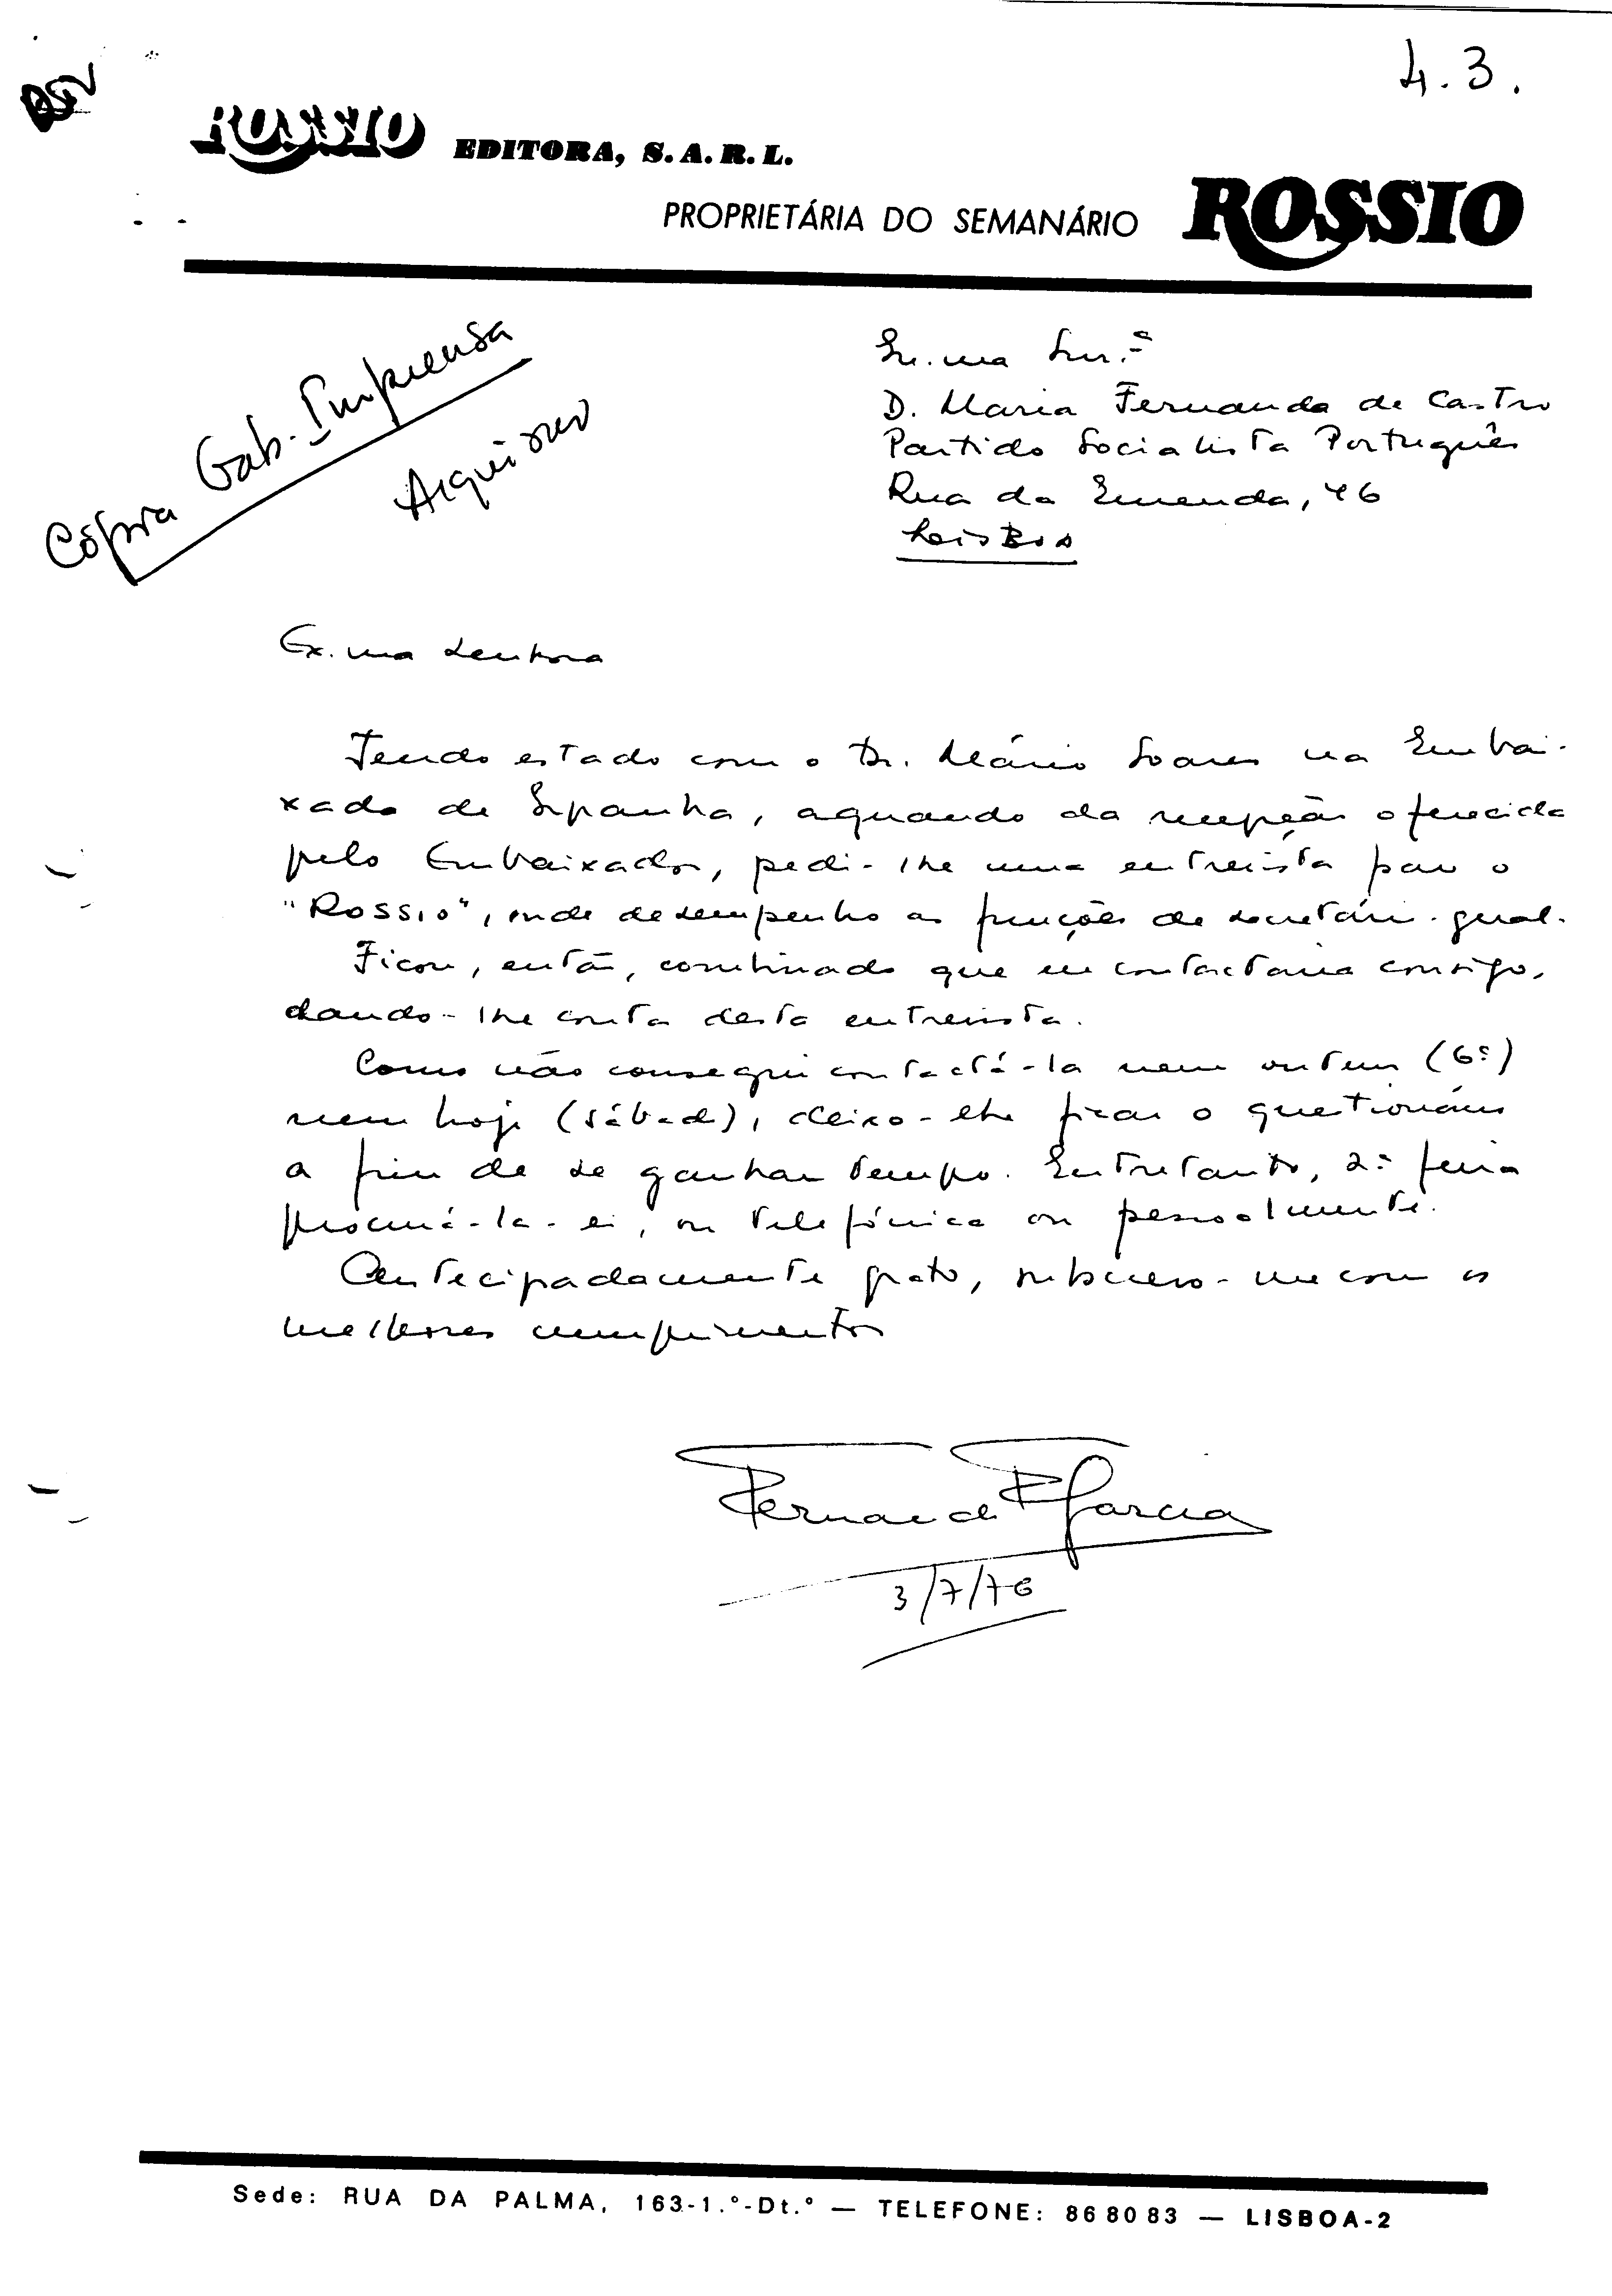 4.3.
ROSSIO EDITORA, S.A.R.L.
PROPRIETÁRIA DO SEMANÁRIO ROSSIO
Cópia Gab. Imprensa
Arquivar
Ex.ma Snr.ª
D. Maria Fernanda de Castro
Partido Socialista Português
Rua da Emenda, 46
Lisboa
Ex.ma Senhora
Tendo estado com o Dr. Mário Soares na Embai-
xada de Espanha, aquando da recepção oferecida
pelo Embaixador, pedi-lhe uma entrevista para o
"Rossio", onde desempenho as funções de secretário-geral.
Ficou, então, combinado que eu contactaria consigo,
dando-lhe conta desta entrevista.
Como não consegui contactá-la nem ontem (6ª)
nem hoje (sábado), deixo-lhe ficar o questionário
a fim de se ganhar tempo. Entretanto, 2ª feira
procurá-la-ei, ou telefónica ou pessoalmente.
Antecipadamente grato, subscrevo-me com os
melhores cumprimentos
Fernando F Garcia
3/7/76
Sede: RUA DA PALMA, 163-1.°-Dt.° — TELEFONE: 86 80 83 — LISBOA-2